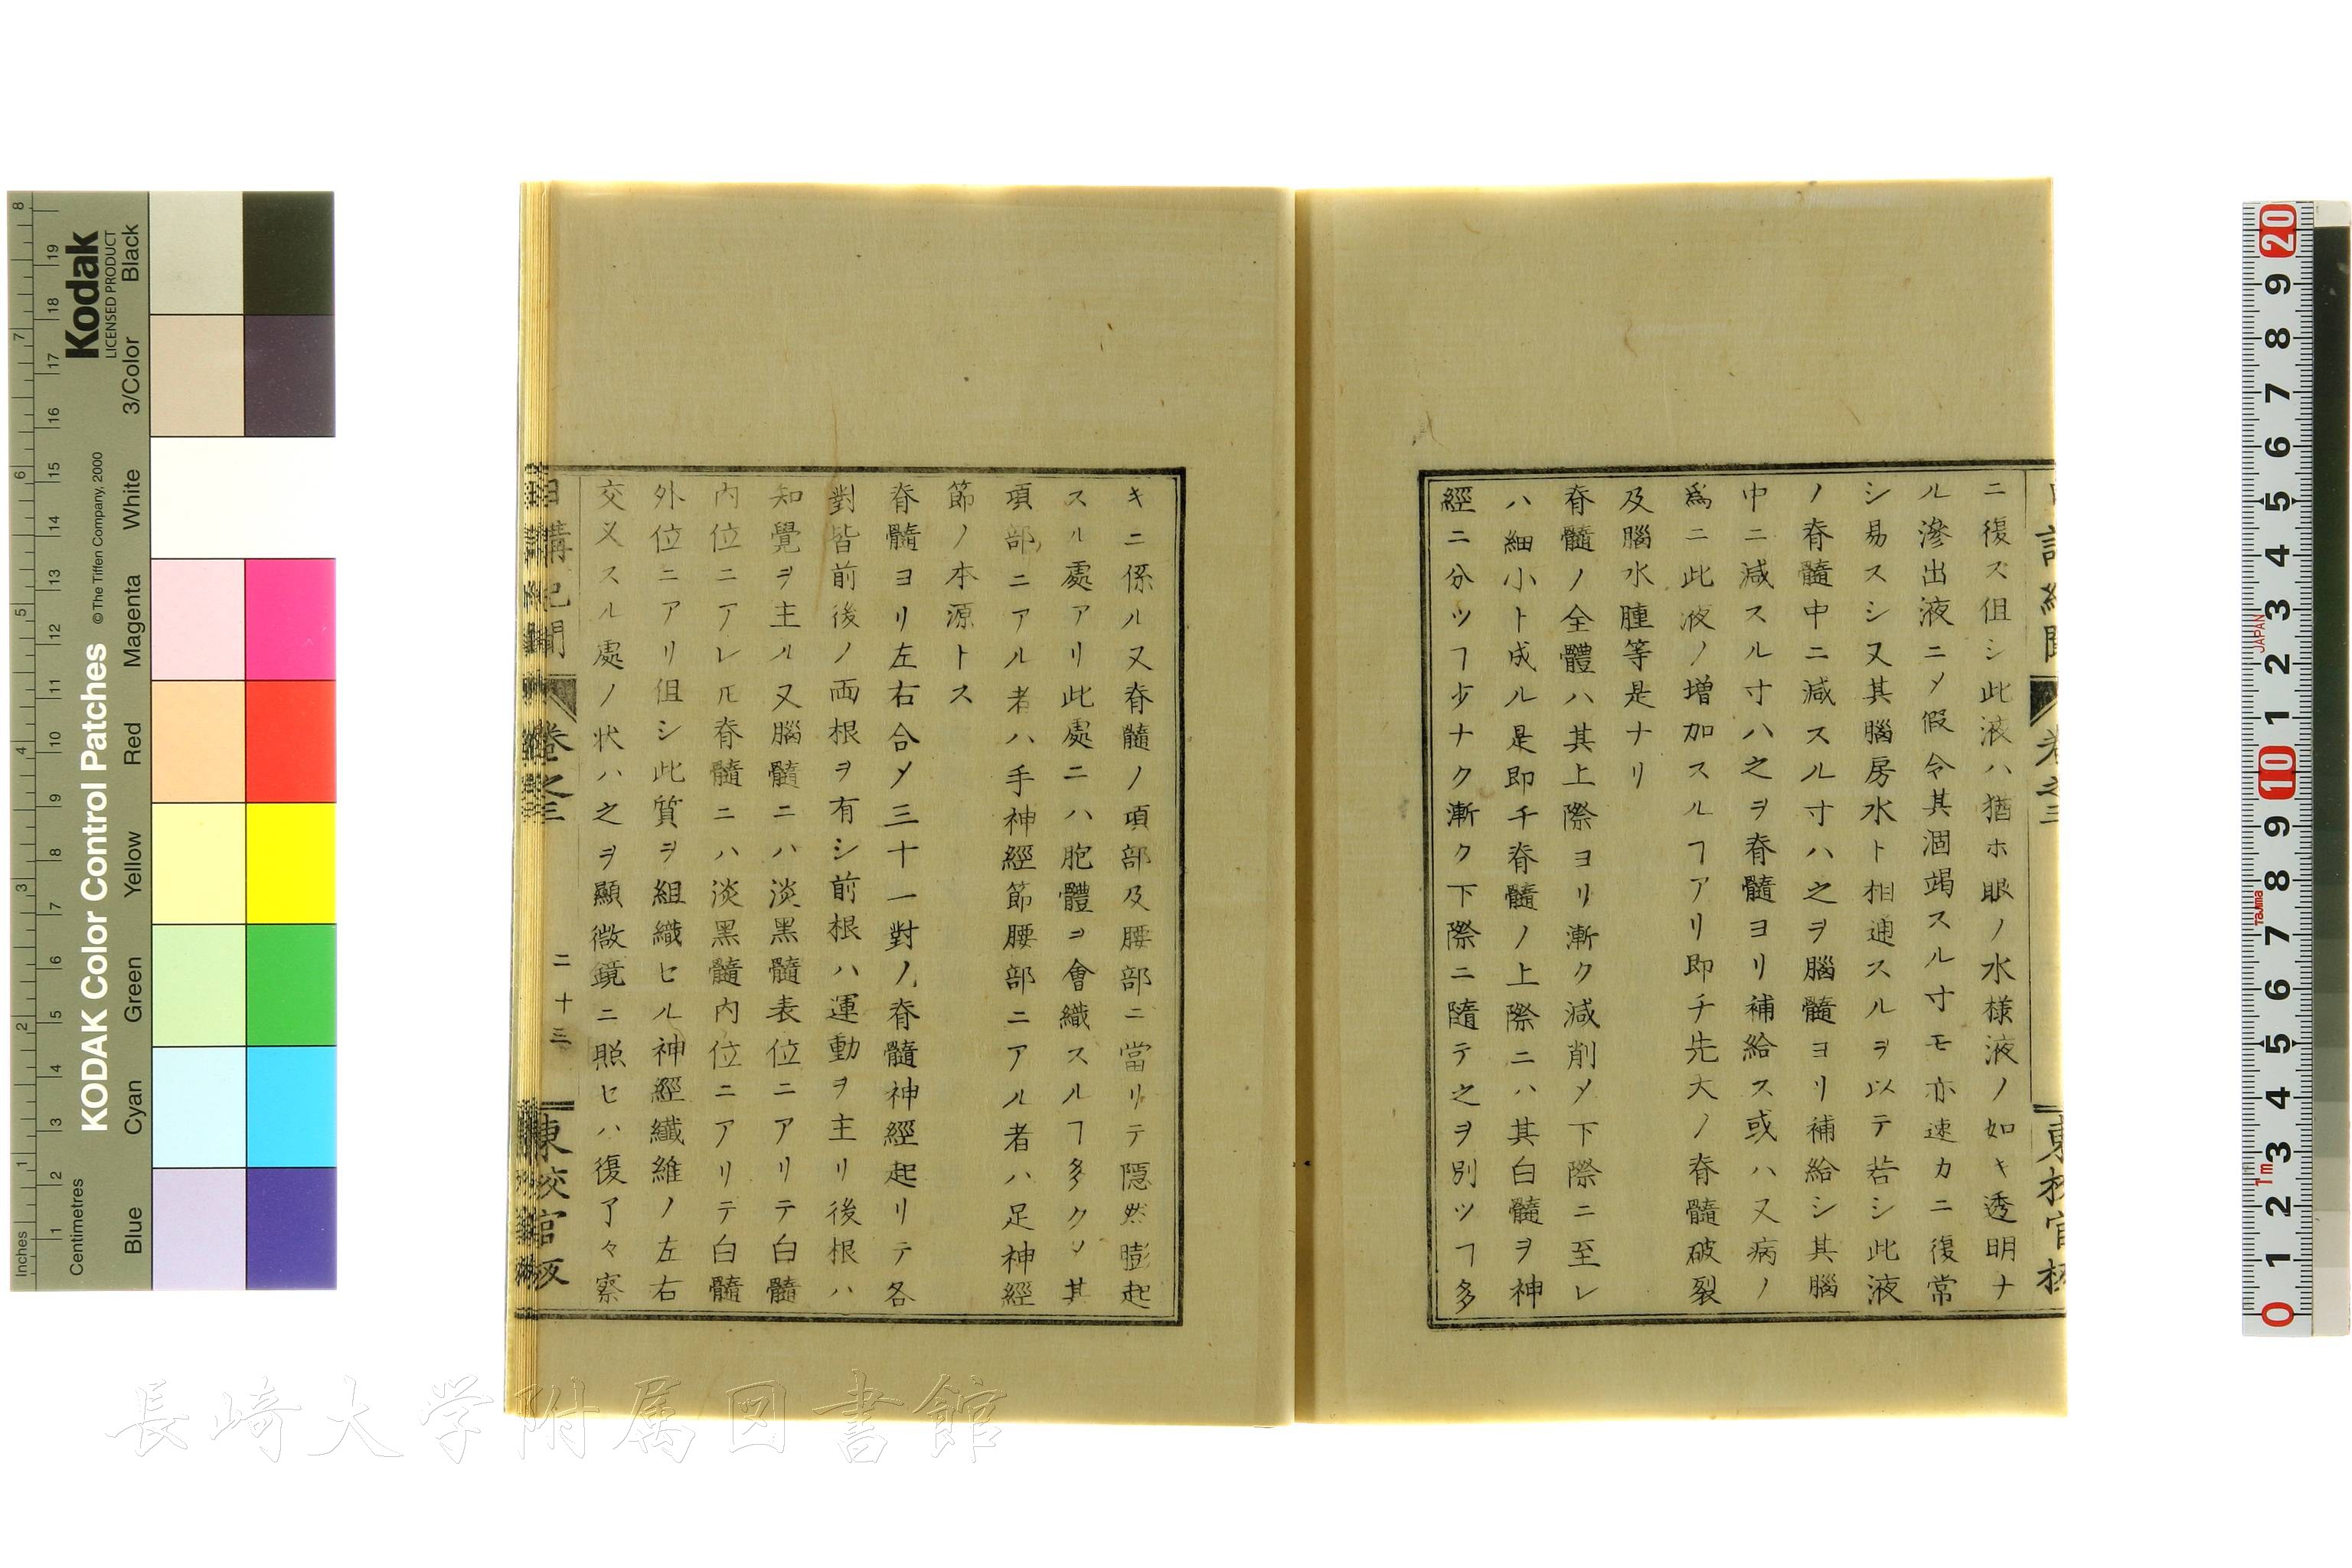 ニ復ス但シ此液ハ猶ホ眼ノ水様液ノ如キ透明ナ
ル滲出液ニ〆假令其涸竭スル寸モ亦速カニ復常
シ易スシ又其腦房水ト相通スルヲ以テ若シ此液
ノ脊髓中ニ減スル寸ハ之ヲ腦髓ヨリ補給シ其腦
中ニ減スル寸ハ之ヲ脊髓ヨリ補給ス或ハ又病ノ
爲ニ此液ノ増加スルヿアリ即チ先大ノ脊髓破裂
及腦水腫等是ナリ
脊髓ノ全體ハ其上際ヨリ漸ク減削〆下際ニ至レ
ハ細小ト成ル是即チ脊髓ノ上際ニハ其白髓ヲ神
經ニ分ツヿ少ナク漸ク下際ニ隨テ之ヲ別ツヿ多
キニ係ル又脊髓ノ項部及腰部ニ當リテ隠然膨起
スル處アリ此處ニハ胞體ヲ會織スルヿ多ク〆其
項部ニアル者ハ手神經節腰部ニアル者ハ足神經
節ノ本源トス
脊髓ヨリ左右合〆三十一對ノ脊髓神經起リテ各
對皆前後ノ両根ヲ有シ前根ハ運動ヲ主リ後根ハ
知覺ヲ主ル又腦髓ニハ淡黒髓表位ニアリテ白髓
内位ニアレ𪜈脊髓ニハ淡黒髓内位ニアリテ白髓
外位ニアリ但シ此質ヲ組織セル神經纎維ノ左右
交叉スル處ノ状ハ之ヲ顯微鏡ニ照セハ復了々察
日講紀聞 卷之三 二十三 東校官板
長崎大学附属図書館
KODAK Color Control Patches
© The Tiffen Company, 2000
Kodak
LICENSED PRODUCT
Inches
Centimetres
Blue Cyan Green Yellow Red Magenta White 3/Color Black
1 2 3 4 5 6 7 8
1 2 3 4 5 6 7 8 9 10 11 12 13 14 15 16 17 18 19
0 1 2 3 4 5 6 7 8 9 10 1 2 3 4 5 6 7 8 9 20
1m
Tajima
JAPAN